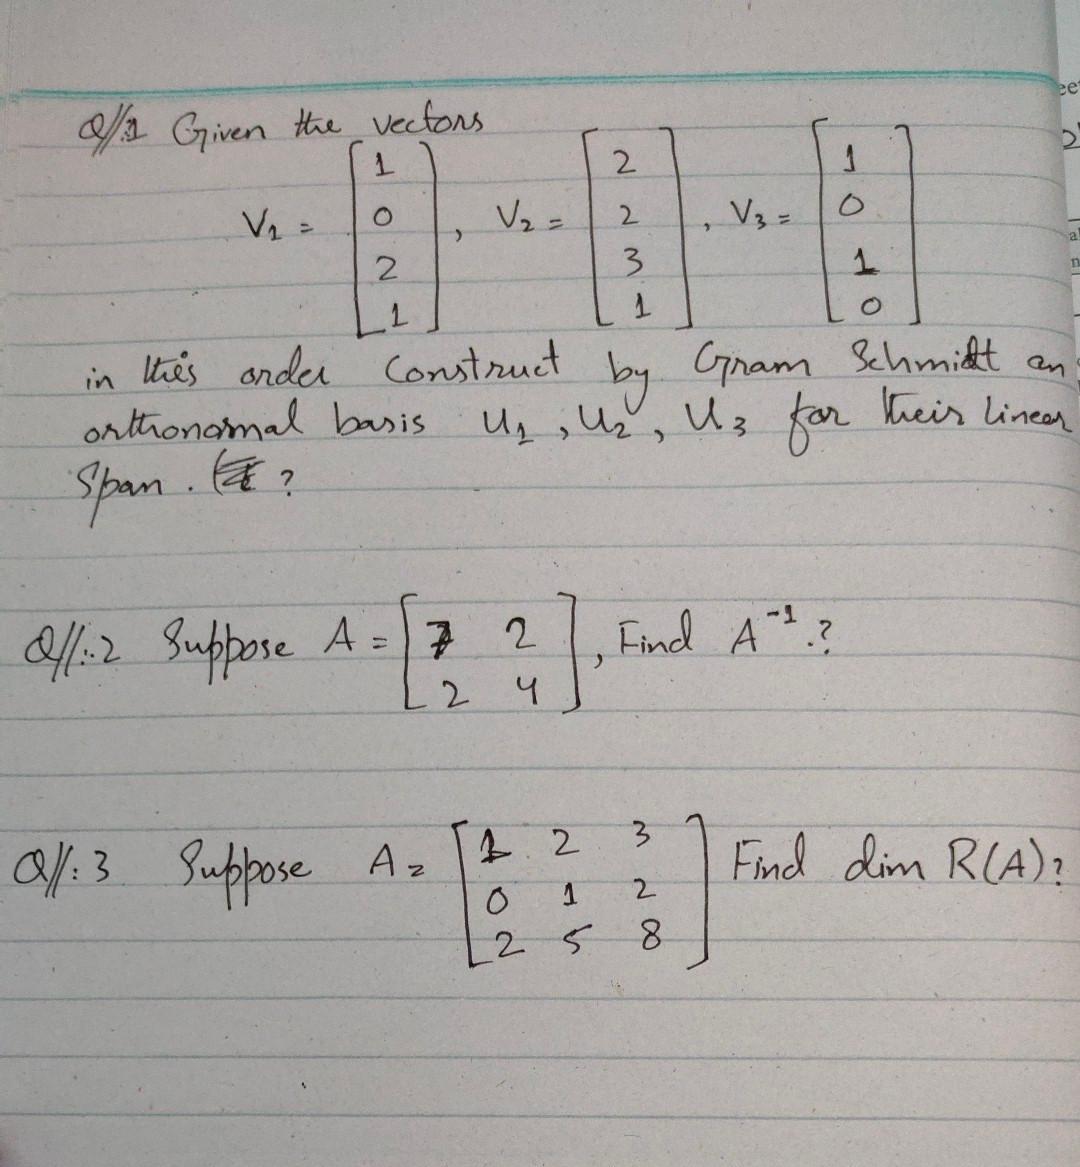 Q//1 Given the vectors
V1 = [1 0 2 1], V2 = [2 2 3 1], V3 = [1 0 1 0]
in this order Construct by Gram Schmidt an
orthonormal basis U1, U2, U3 for their linear
Span. ?
Q//:2 Suppose A = [7 2
2 4], Find A⁻¹.?
Q//:3 Suppose A = [1 2 3
0 1 2
2 5 8] Find dim R(A)?